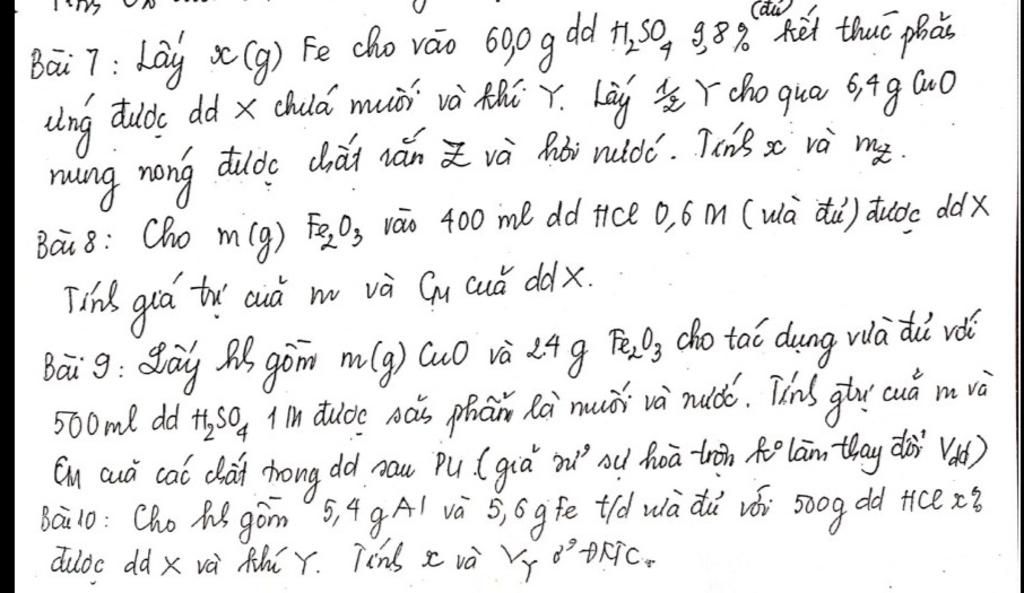 Bài 7: Lấy x(g) Fe cho vào 60,0 g dd H₂SO₄ 9,8% (đủ) kết thúc phản
ứng được dd X chứa muối và khí Y. Lấy ½ Y cho qua 6,4 g CuO
nung nóng được chất rắn Z và hơi nước. Tính x và m_Z.
Bài 8: Cho m(g) Fe₂O₃ vào 400 ml dd HCl 0,6 M (vừa đủ) được dd X
Tính giá trị của m và C_M của dd X.
Bài 9: Lấy hh gồm m(g) CuO và 24 g Fe₂O₃ cho tác dụng vừa đủ với
500ml dd H₂SO₄ 1M được sản phẩm là muối và nước. Tính gtrị của m và
C_M của các chất trong dd sau PƯ (giả sử sự hoà trộn k° làm thay đổi V_dd)
Bài 10: Cho hh gồm 5,4 g Al và 5,6 g Fe t/d vừa đủ với 500g dd HCl x%
được dd X và khí Y. Tính x và V_Y ở ĐKTC.